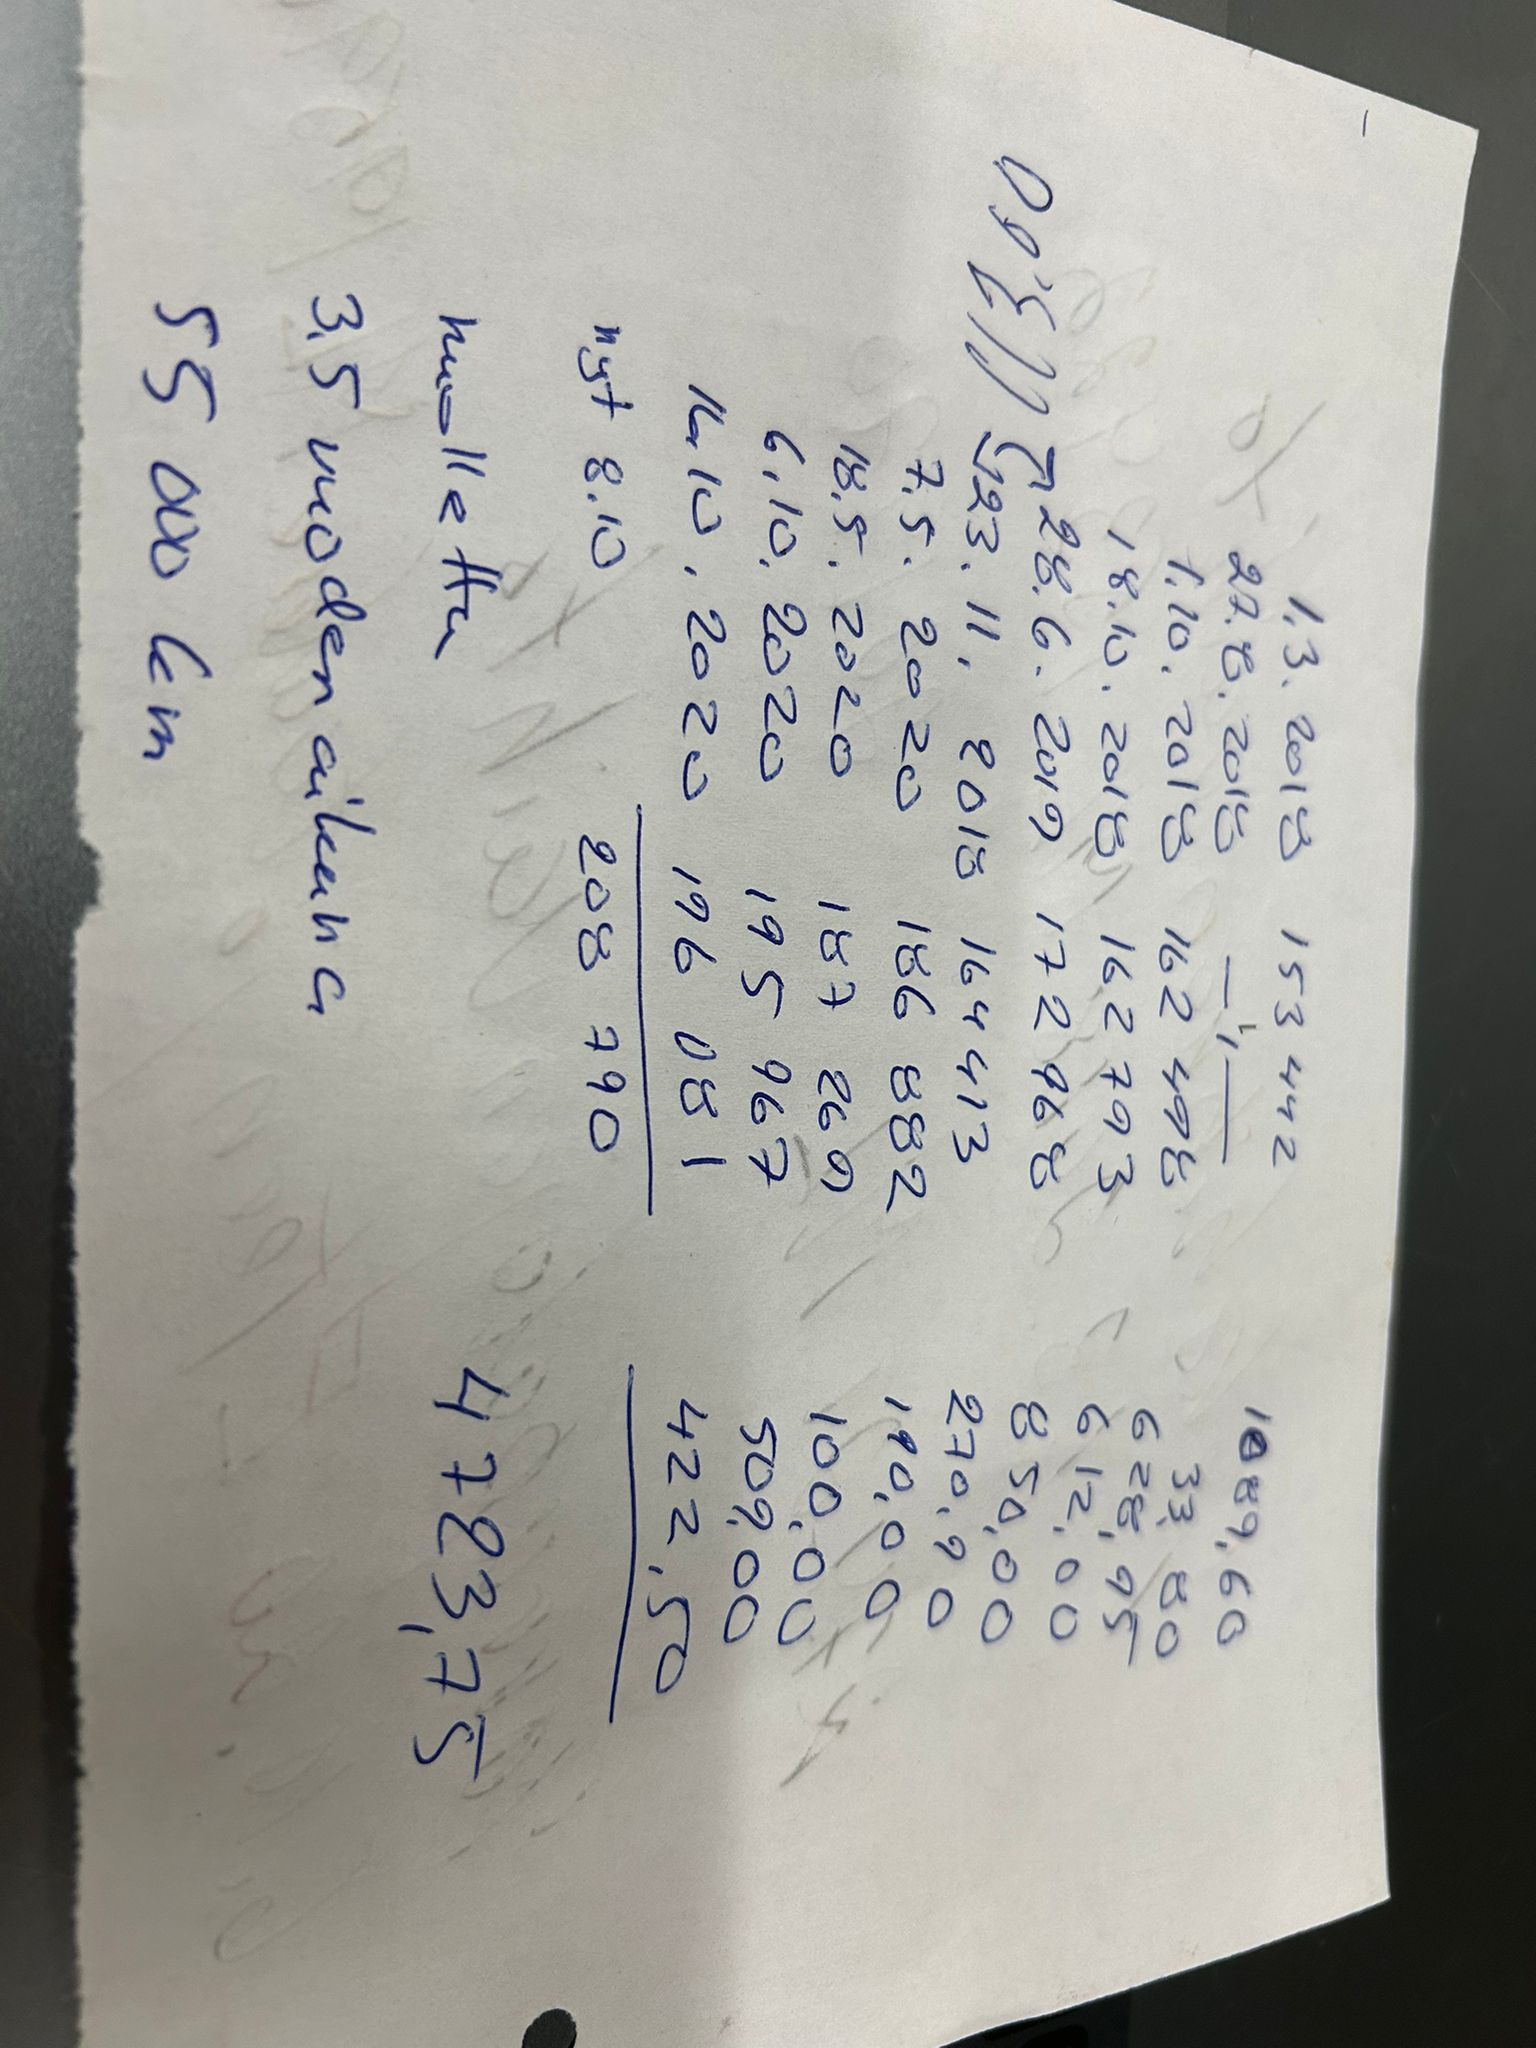 1.3.2018 153 442 1089,60
27.8.2018 —"— 33,80
1.10.2018 162 498 628,95
18.10.2018 162 793 612,00
28.6.2019 172 968 850,00
23.11.2018 164 413 270,90
7.5.2020 186 882 190,00
18.5.2020 187 269 100,00
6.10.2020 195 967 509,00
14.10.2020 196 081 422,50
nyt 8.10 208 790
huollettu 4783,75
3,5 vuoden aikana
55 000 km